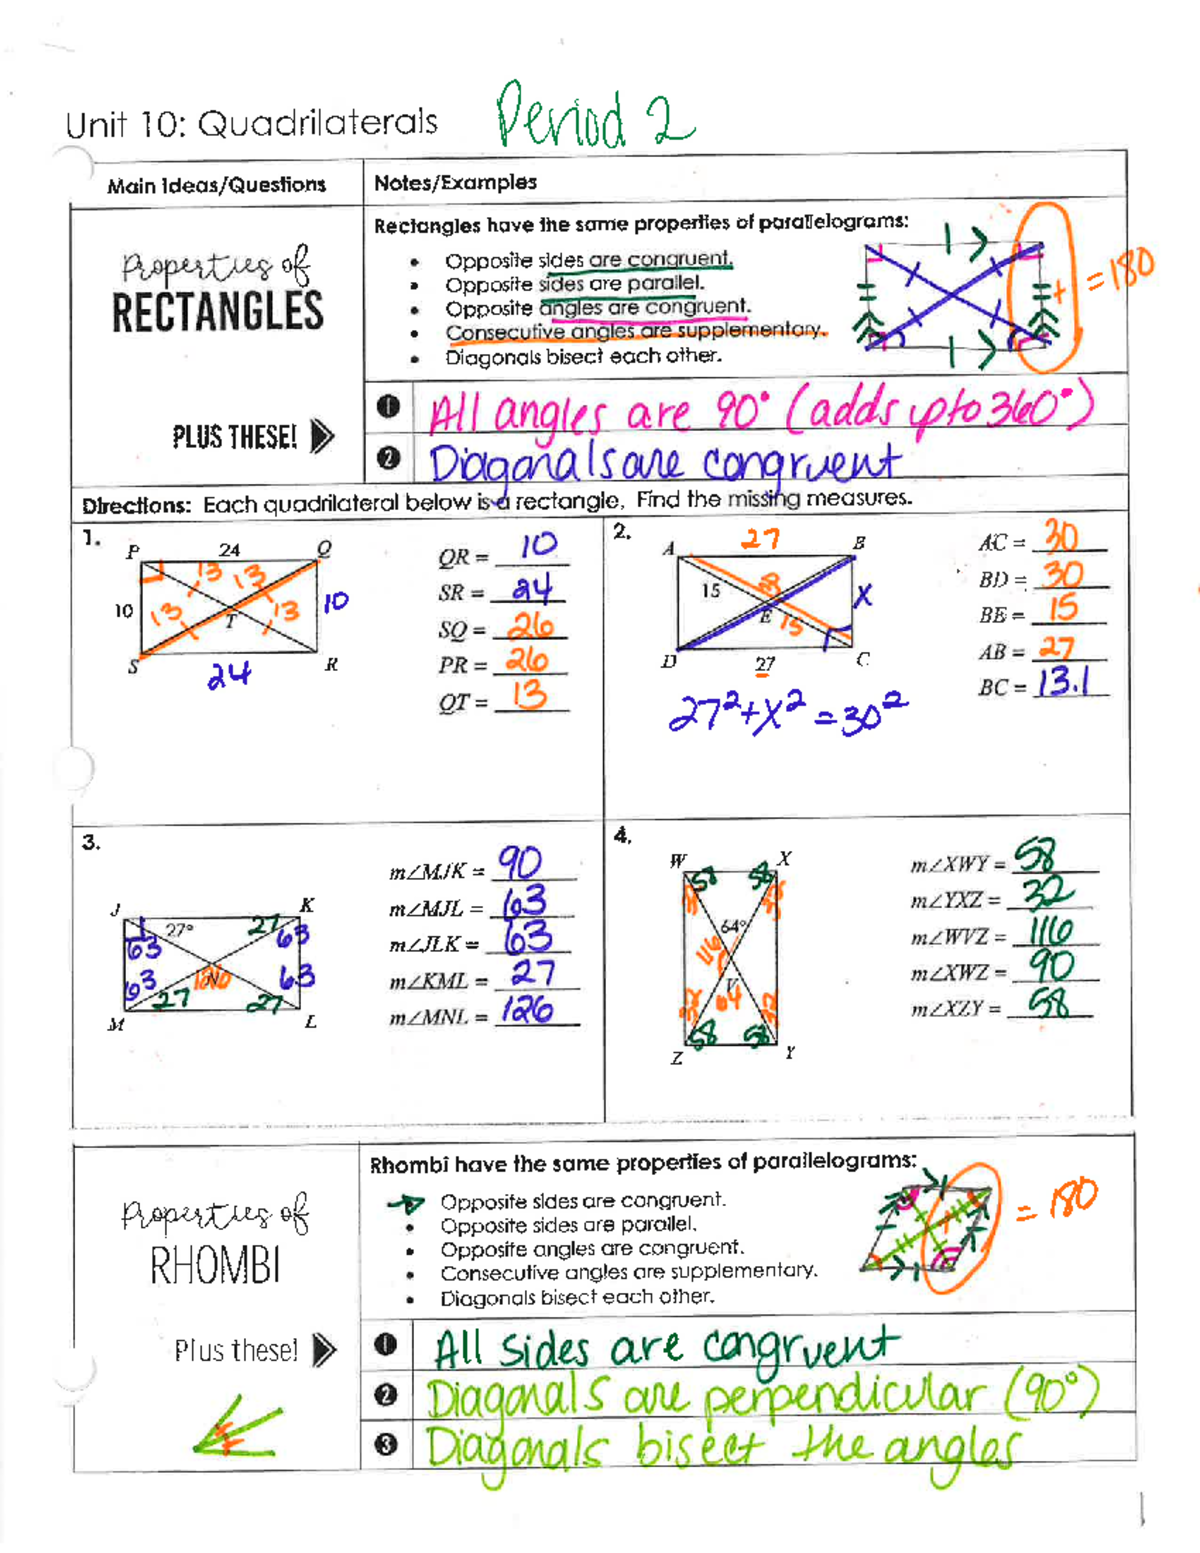 Unit 10: Quadrilaterals Period 2
Main Ideas/Questions Notes/Examples
Properties of
RECTANGLES
PLUS THESE!
Rectangles have the same properties of parallelograms:
• Opposite sides are congruent.
• Opposite sides are parallel.
• Opposite angles are congruent.
• Consecutive angles are supplementary.
• Diagonals bisect each other.
= 180
1 All angles are 90° (adds up to 360°)
2 Diagonals are congruent
Directions: Each quadrilateral below is a rectangle. Find the missing measures.
1.
P 24 Q
13 13
10 13 13 10
T
S 24 R
QR = 10
SR = 24
SQ = 26
PR = 26
QT = 13
2.
27
A B
15 X
E 15
D 27 C
27² + x² = 30²
AC = 30
BD = 30
BE = 15
AB = 27
BC = 13.1
3.
J K
27° 27
63 63
N 126
63 63
27 27
M L
m∠MJK = 90
m∠MJL = 63
m∠JLK = 63
m∠KML = 27
m∠MNL = 126
4.
W X
58 58
32 32
64°
116
V
64
32 32
58 58
Z Y
m∠XWY = 58
m∠YXZ = 32
m∠WVZ = 116
m∠XWZ = 90
m∠XZY = 58
Properties of
RHOMBI
Plus these!
Rhombi have the same properties of parallelograms:
• Opposite sides are congruent.
• Opposite sides are parallel.
• Opposite angles are congruent.
• Consecutive angles are supplementary.
• Diagonals bisect each other.
= 180
1 All sides are congruent
2 Diagonals are perpendicular (90°)
3 Diagonals bisect the angles